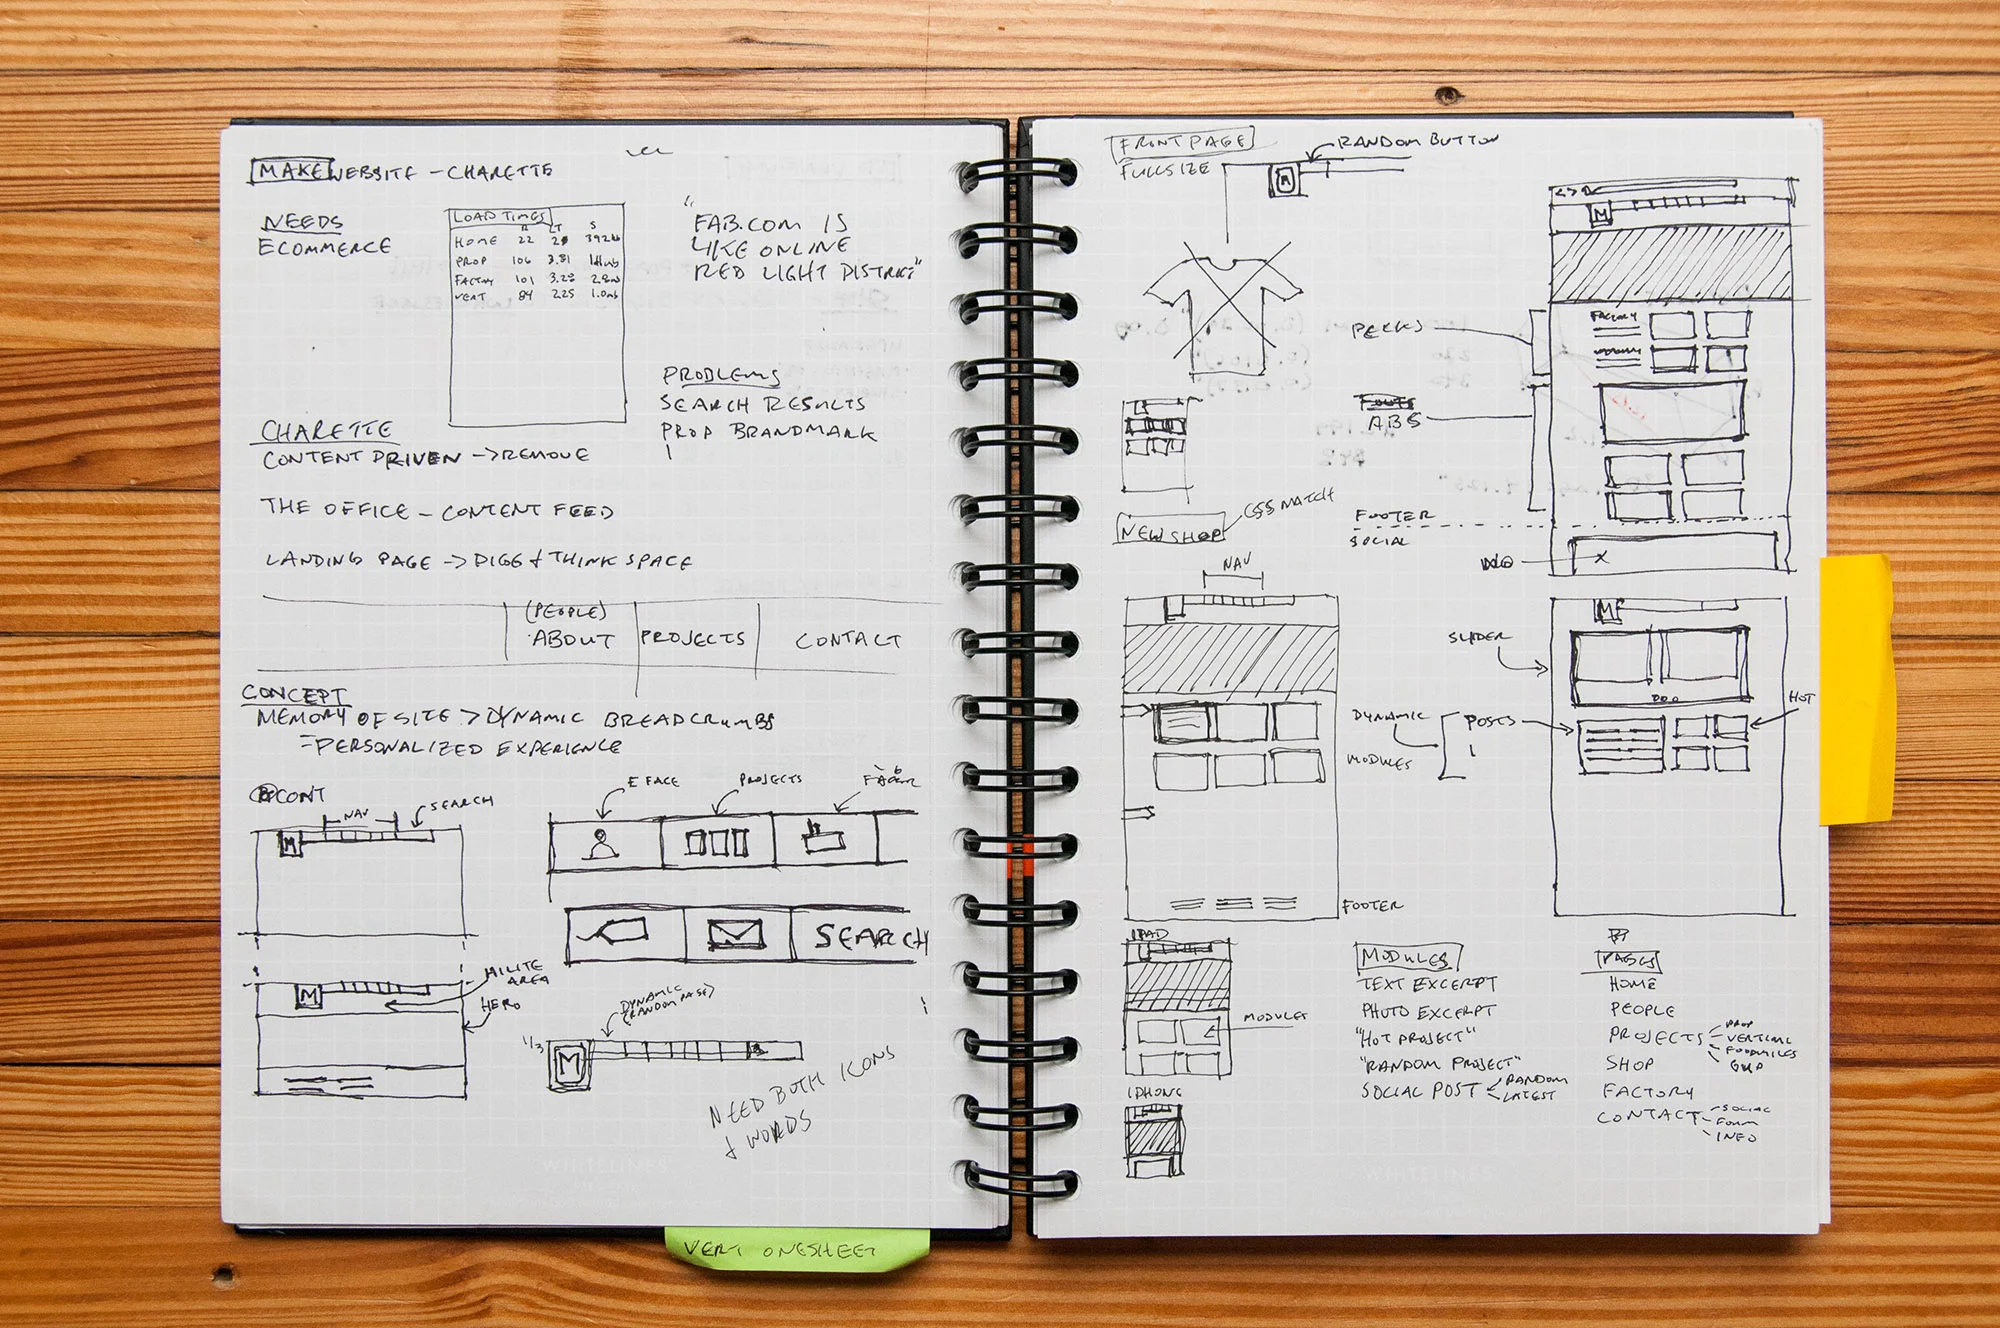 MAKE WEBSITE - CHARETTE
NEEDS
ECOMMERCE
LOAD TIMES
R LT S
HOME 22 392kb
PROP 106 3.81
FACTORY 101 3.28 2.8mb
VERT 84 2.25 1.0mb
"FAB.COM IS
LIKE ONLINE
RED LIGHT DISTRICT"
PROBLEMS
SEARCH RESULTS
PROP BRANDMARK
CHARETTE
CONTENT DRIVEN -> REMOVE
THE OFFICE - CONTENT FEED
LANDING PAGE -> DIGG + THINK SPACE
(PEOPLE)
ABOUT
PROJECTS
CONTACT
CONCEPT
MEMORY OF SITE > DYNAMIC BREADCRUMBS
= PERSONALIZED EXPERIENCE
CONT
NAV
SEARCH
M
FACE
PROJECTS
SEARCH
HILITE
AREA
HERO
M
DYNAMIC
(RANDOM PAGE)
1/3
M
NEED BOTH ICONS
+ WORDS
WHITELINES
VERT ONESHEET
FRONT PAGE
FULLSIZE
RANDOM BUTTON
M
M
FACTORY
PERKS
ABS
NEW SHOP
CSS MATCH
FOOTER
SOCIAL
X
NAV
M
SLIDER
HOT
DYNAMIC
POSTS
MODULES
FOOTER
IPAD
MODULES
IPHONE
MODULES
TEXT EXCERPT
PHOTO EXCERPT
"HOT PROJECT"
"RANDOM PROJECT"
SOCIAL POST
RANDOM
LATEST
PAGES
HOME
PEOPLE
PROJECTS
PROP
VERTICAL
FOODMILES
SHOP
FACTORY
CONTACT
SOCIAL
FORM
INFO
WHITELINES